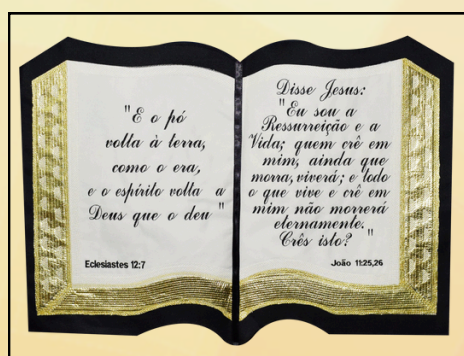 "E o pó
volta à terra,
como o era,
e o espírito volta a
Deus que o deu"
Eclesiastes 12:7
Disse Jesus:
"Eu sou a
Ressurreição e a
Vida; quem crê em
mim, ainda que
morra, viverá; e todo
o que vive e crê em
mim não morrerá
eternamente.
Crês isto?"
João 11:25,26